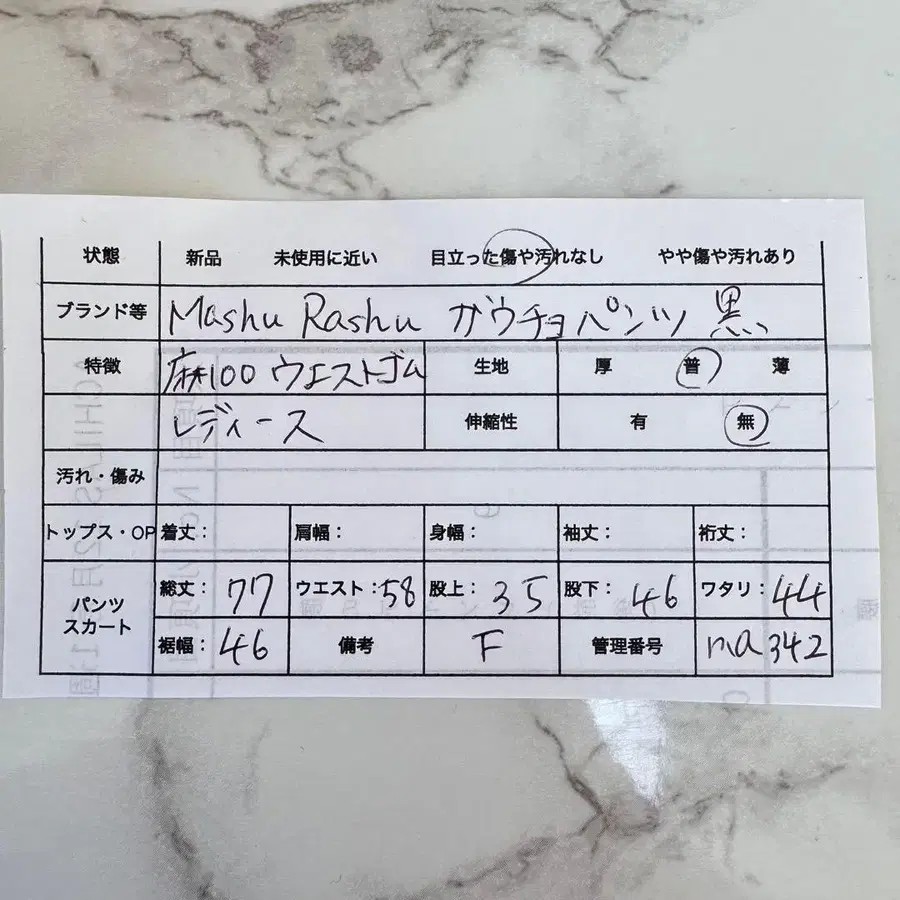 状態 新品 未使用に近い 目立った傷や汚れなし やや傷や汚れあり
ブランド等 Mashu Rashu ガウチョパンツ 黒
特徴 麻100 ウエストゴム 生地 厚 普 薄
レディース 伸縮性 有 無
汚れ・傷み
トップス・OP 着丈： 肩幅： 身幅： 袖丈： 裄丈：
パンツ スカート 総丈：77 ウエスト：58 股上：35 股下：46 ワタリ：44
裾幅：46 備考 F 管理番号 ma342